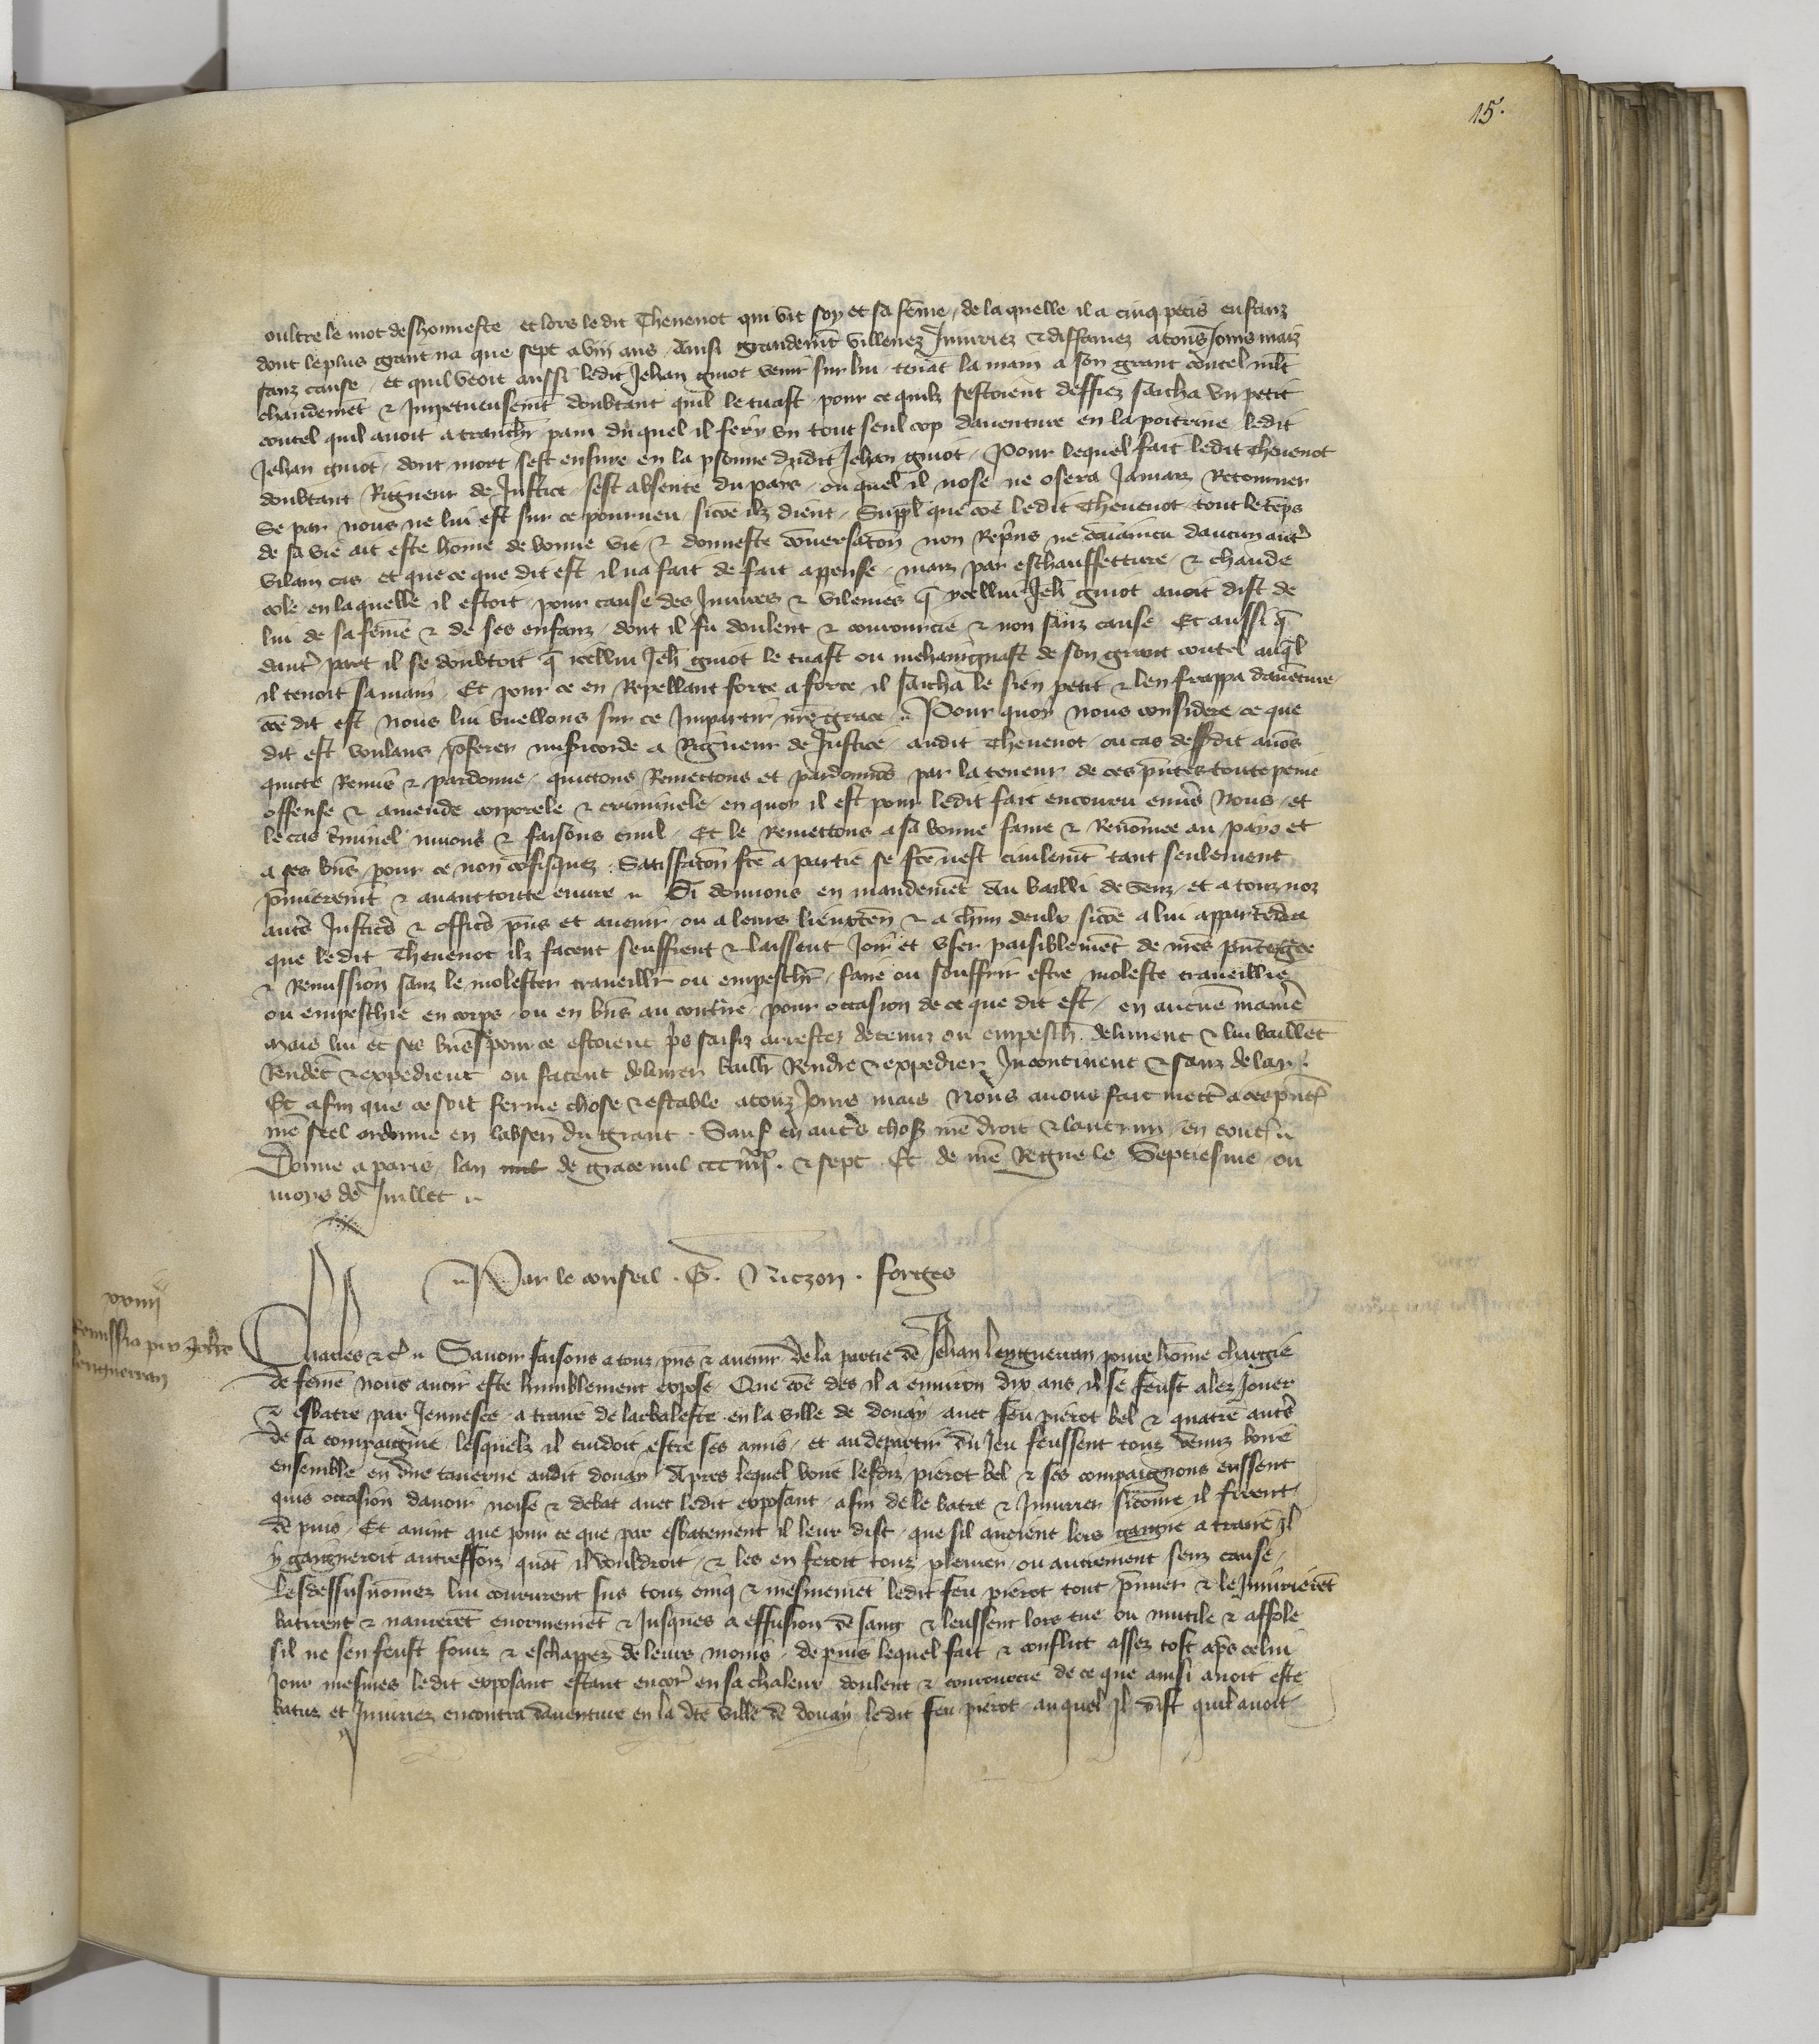 15.
oultre le mot deshonneste et lors ledit Thevenot qui vit soy et sa fẽme, de la quelle il a cinq petis enfanz
dont le plus grant na que sept a viii ans, Ainsi grandemẽt villenez Injuriez & diffamez a tous Jours maiz
sanz cause, et quil veoit aussi ledit Jehan guiot venir sur lui tenãt la main a son grant coutel mlt
chaudemẽt & Impetueusemt doubtant quil le tuast pour ce quilz sestoient deffiez sacha un petit
coutel quil avoit a tranchr pain du quel il fery un tout seul cop daventure en la poitrine ledit
Jehan guiot, dont mort sest ensuie en la psonne dudit Jehan guiot, Pour lequel fait ledit Thevenot
doubtant Rigueur de Justice sest absente du pays, ou quel il nose ne osera Jamaiz Retourner
Se par nous ne lui est sur ce pourveu sicõe ilz dient, Suppl que cõe ledit Thevenot tout le tẽps
de sa vie ait este hõme de bonne vie & donneste cõversatoñ non Repris ne cõvaincu daucun autr
vilain cas et que ce que dit est il na fait de fait appense, maiz par eschauffetture & chaude
cole en laquelle il estoit pour cause des Injures & vilenies q̃ ycellui Jeh guiot avoit dist de
lui de sa fẽme & de ses enfanz, dont il fu doulent & courroucie & non sanz cause Et aussi q̃
dautr part il se doubtoit q̃ icellui Jeh guiot le tuast ou mehaingnast de son grant coutel auq̃l
il tenoit sa main, Et pour ce en Repellant force a force il sacha le sien petit & len frappa davẽture
cõe dit est nous lui vuellons sur ce Impartir nr̃e grace, Pour quoy nous considere ce que
dit est voulans p̃ferer misicorde a Rigueur de Justice, audit Thevenot ou cas dessdit avõs
quicte Remis & pardonne, quictons Remettons et pardonnõs par la teneur de ces p̃ntes toute peine
offense & amende corporele & criminele, en quoy il est pour ledit fait encouru envs Nous, et
le cas c̃minel muons & faisons civil, Et le Remettons a sa bonne fame & Renõmee au pays et
a ses bñs pour ce non cõfisquez. Satisfacõn fce a partie se fce nest civilemt tant seulement
p̃mieremt & avant toute euvre, Si donnons en mandemẽt Au bailli de Senz, et a touz noz
autrs Justicrs & officrs p̃ns et avenir, ou a leurs lieuxteñ & a chñ deulx sicõe a lui appartẽdra
que ledit Thevenot ilz facent seuffrent & laissent Joir et user paisiblemẽt de nr̃es p̃ntes gce
& Remission sanz le molester traveillr ou empeschr, faire ou souffrir estre moleste traveillie
ou empeschie en corps, ou en bñs au contr̃e, pour occasion de ce que dit est, en aucũe manie
mais lui et ses bñs se pour ce estoient pris saisiz arrestez detenuz ou empesch delivrent & lui baillẽt
Rendẽt & expedient ou facent delivrer baillr Rendre & expedier Incontinent & sanz delay.
Et afin que ce soit ferme chose & estable a touz Jours mais Nous avons fait mettr a ces p̃ntes
nr̃e seel ordonne en labseñ du grant. Sauf en autrs choses nr̃e droit & lautrui en toutes
Donne a paris, lan de grace mil ccc iiiixx. & sept. Et de nr̃e Regne le Septiesme, ou
moys de Juillet
Par le conseil. G. Niczon. forges
xxiiii
Remissio pro Johe
lenguerran
Charles &c Savoir faisons a touz p̃ns & avenir De la partie de Jehan Lenguerran povre hõme chargie
de fẽme nous avoir este humblement expose, Que cõe des il a environ dix ans il se feust alez Jouer
& esbatre par Jennesce a traire de larbaleste en la ville de douay avec feu pierot bel & quatre autrs
de sa compaignie, lesquelz il cuidoit estre ses amis, et au departir du Jeu feussent touz venuz boire
ensemble en une taverne audit douay Apres lequel boire lesdiz pierot bel & ses compaignons eussent
quis occasion davoir noise & debat avec ledit exposant, afin de le batre & Injurier sicõme il firent
de puis, Et avint que pour ce que par esbatement il leur dist, que sil avoient lors gangie a traire il
y gaigneroit autreffoiz quãt il vouldroit, & les en feroit touz pleurer, ou autrement senz cause,
Lesdessusnõmez lui coururent sus touz cinq & mesmemẽt ledit feu pierot tout p̃mier & le Injurierẽt
batirent & navrerẽt enormemẽt & Jusques a effusion de sang & leussent lors tue ou mutile & affole
sil ne sen feust fouiz & eschappez de leurs mains, de puis lequel fait & conflict assez tost aps celui
Jour mesmes ledit exposant estant encor en sa chaleur doulent & courroucie de ce que ainsi avoit este
batuz et Injuriez encontra daventure en la dte ville de douay ledit feu pierot auquel Il dist quil avoit